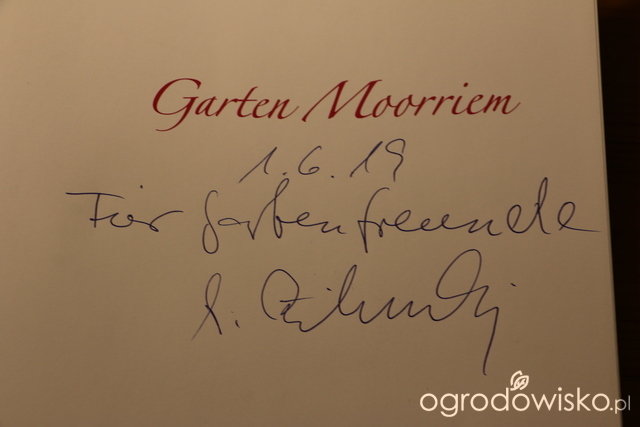 Garten Moorriem
1.6.19
Für Gartenfreunde
ogrodowisko.pl